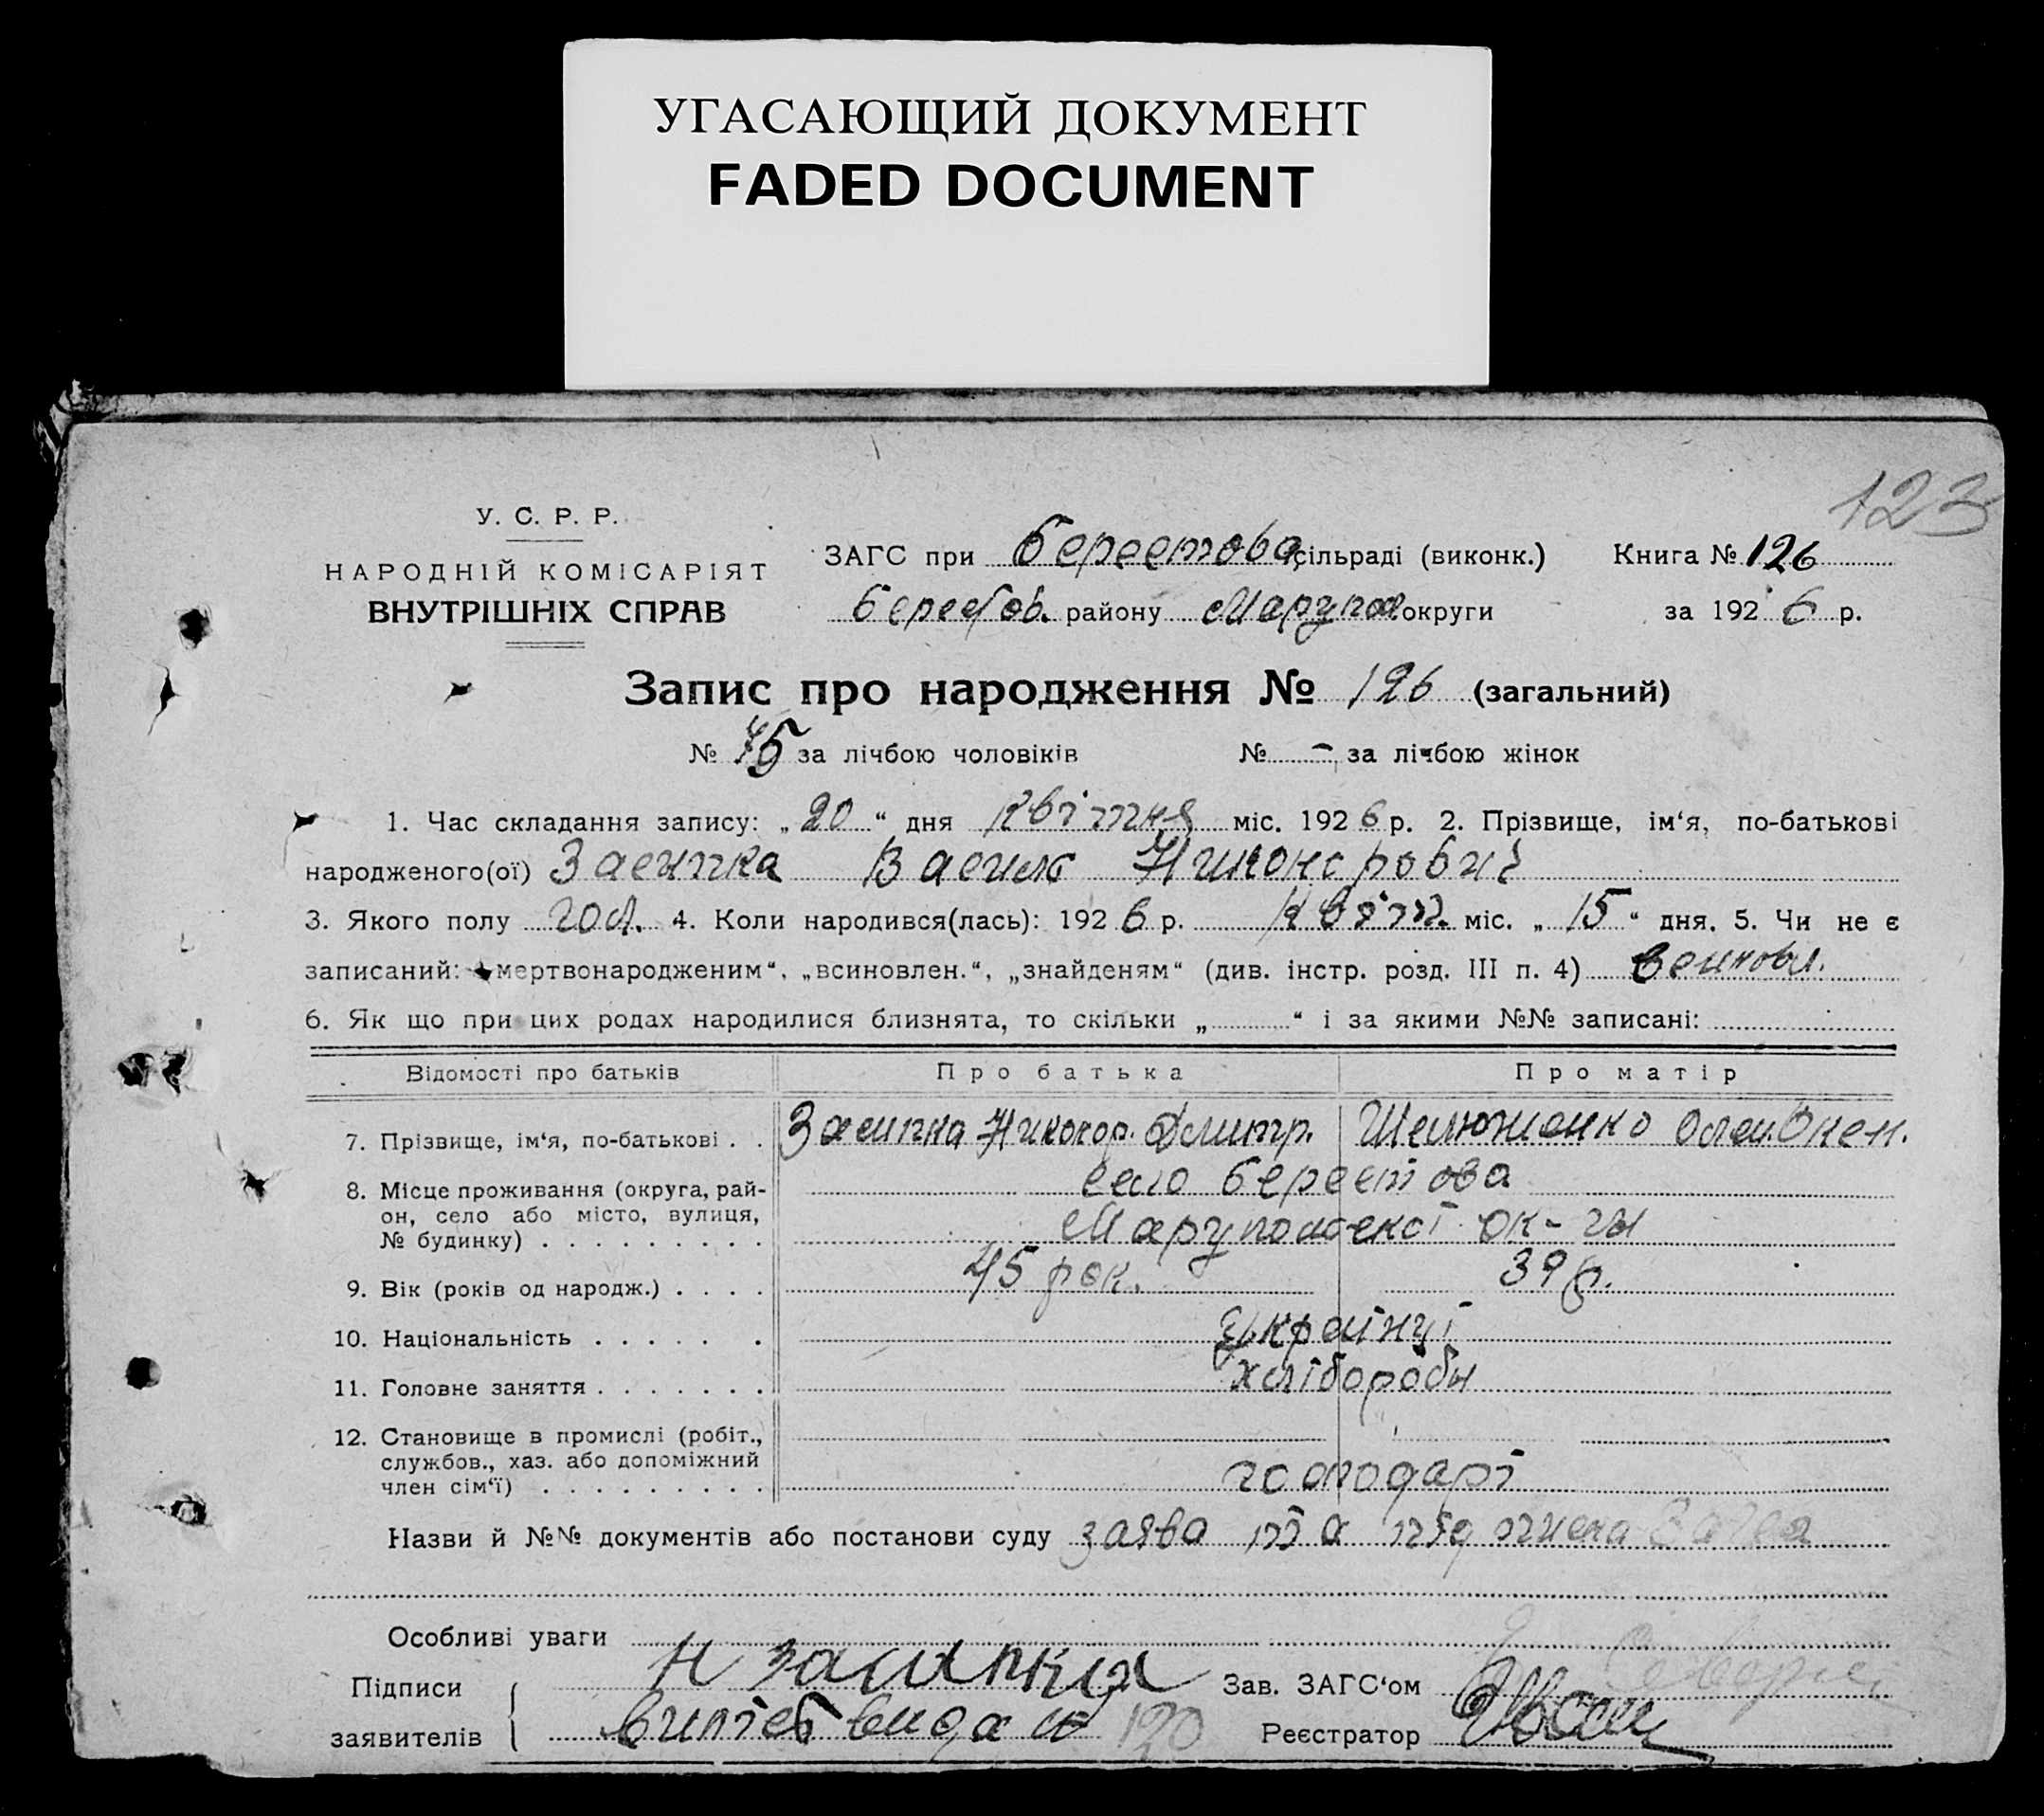 УГАСАЮЩИЙ ДОКУМЕНТ
FADED DOCUMENT
123
У. С. Р. Р.
НАРОДНІЙ КОМІСАРІЯТ
ВНУТРІШНІХ СПРАВ
ЗАГС при Берестова сільраді (виконк.) Книга № 126
Берестов. району Маріупол округи за 1926 р.
Запис про народження № 126 (загальний)
№ 75 за лічбою чоловіків № – за лічбою жінок
1. Час складання запису: „20“ дня квітня міс. 1926 р. 2. Прізвище, ім‘я, по-батькові
народженого(ої) Засипка Василь Никонорович
3. Якого полу чол. 4. Коли народився(лась): 1926 р. квітн. міс. „15“ дня. 5. Чи не є
записаний: „мертвонародженим“, „всиновлен.“, „знайденям“ (див. інстр. розд. III п. 4) всиновл.
6. Як що при цих родах народилися близнята, то скільки „ “ і за якими №№ записані:
Відомості про батьків Про батька Про матір
7. Прізвище, ім‘я, по-батькові . . Засипка Никонор. Дмитр. Шелюженко Олен.
8. Місце проживання (округа, рай- село Берестова
он, село або місто, вулиця, Марупольскої ок-ги
№ будинку) . . . . . . . . .
9. Вік (років од народж.) . . . . 45 рок. 39 р.
10. Національність . . . . . . . українці
11. Головне заняття . . . . . . . хліборобы
12. Становище в промислі (робіт.,
службов., хаз. або допоміжний
член сім‘ї) . . . . . . . . . господарі
Назви й №№ документів або постанови суду заява та підписка
Особливі уваги
Підписи Н Засипка Зав. ЗАГС‘ом
заявителів витяг видан 120 Реєстратор